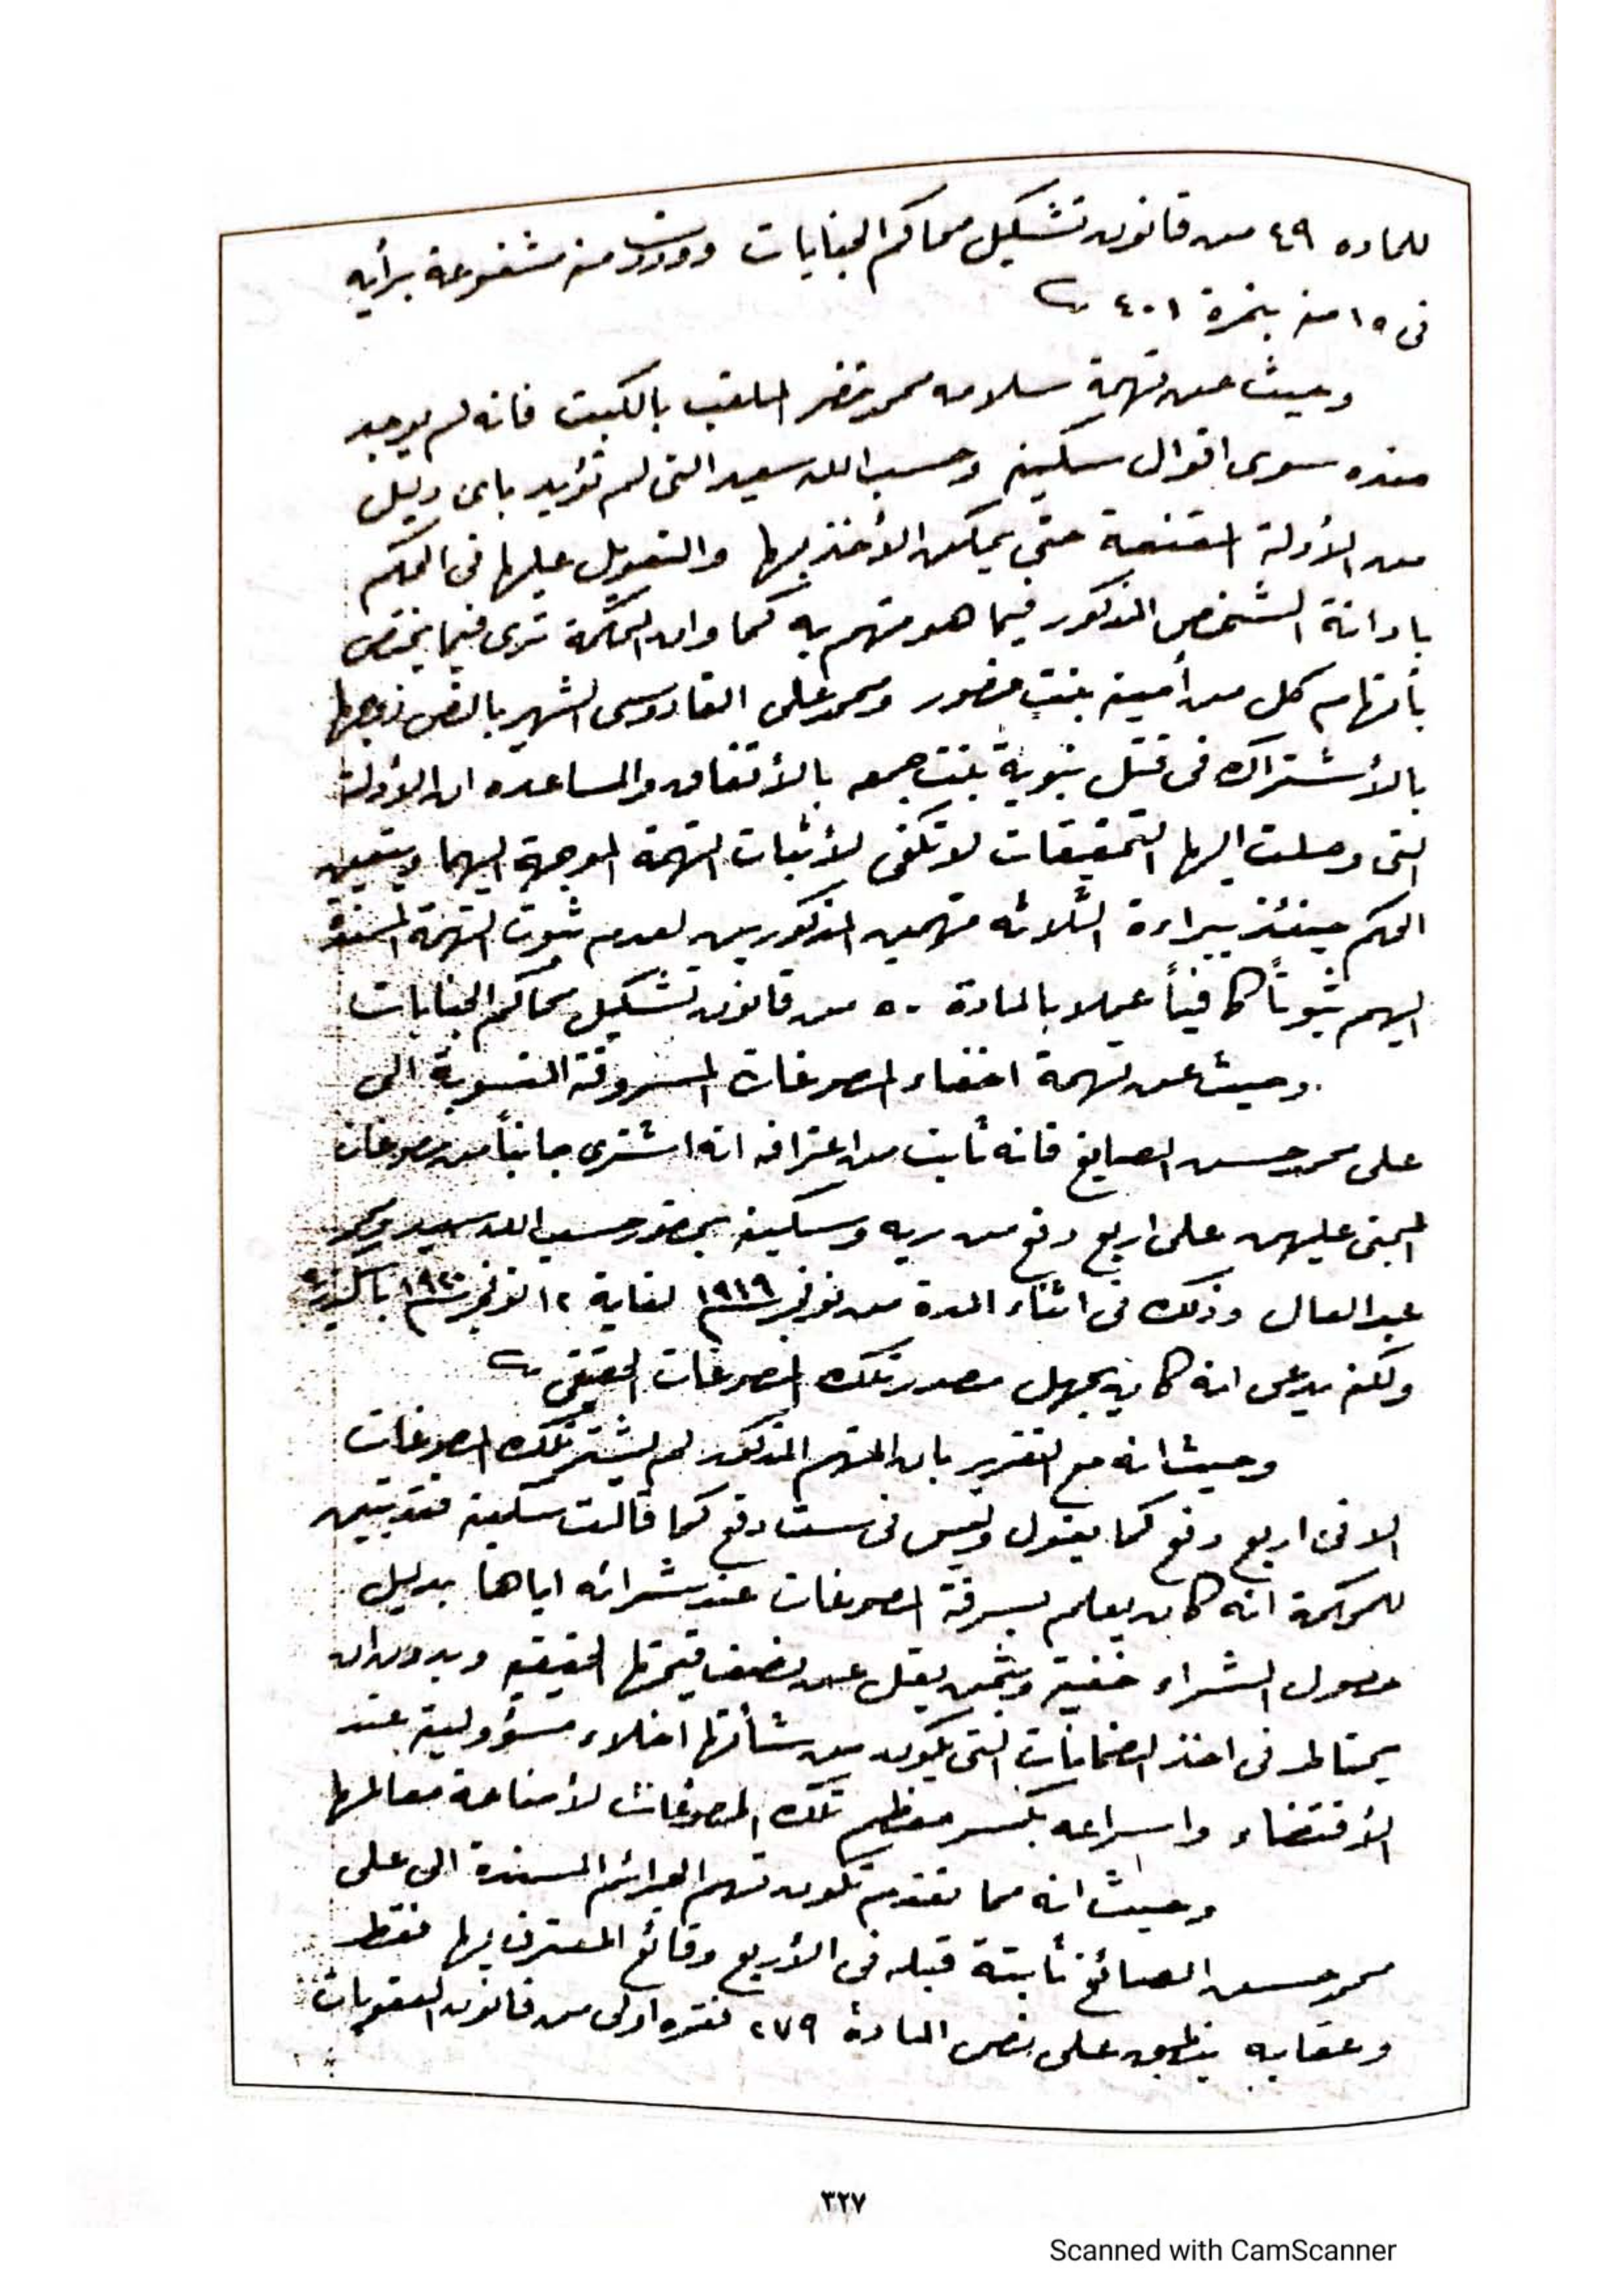 للماده ٤٩ من قانون تشكيل محاكم الجنايات ووردت منه مشفوعة برأيه
فى ١٥ منه بنمرة ٤٠١
وحيث عن تهمة سلامه محمد خضر الملقب بالكبت فانه لم يوجد
ضده سوى اقوال سكينه وحسب الله سعيد التى لم تؤيد باى دليل
من الأدلة المقنعة حتى يمكن الأخذ بها والتعويل عليها فى الحكم
بادانة الشخص المذكور فيما هو متهم به كما وان المحكمة ترى فيما يختص
بأتهام كل من أمينه بنت منصور ومحمد على القادوسى الشهير بالنص زوجها
بالأشتراك فى قتل نبوية بنت جمعه بالأتفاق والمساعده ان الأدلة
التى وصلت اليها التحقيقات لا تكفى لأثبات التهمة الموجهة اليهما ويتعين
الحكم حينئذ ببراءة الثلاثه متهمين المذكورين لعدم ثبوت التهمة المسندة
اليهم ثبوتاً كافياً عملا بالمادة ٥٠ من قانون تشكيل محاكم الجنايات
وحيث عن تهمة اخفاء المصوغات المسروقة المنسوبة الى
على محمد حسن الصايغ فانه ثابت من اعترافه انه اشترى جانباً من مصوغات
المجنى عليهن على اربع دفع من ريه وسكينه بحضور حسب الله سعيد ومحمد
عبد العال وذلك فى اثناء المدة من نوفمبر سنة ١٩١٩ لغاية ١٢ نوفمبر سنة ١٩٢٠ باسكندرية
ولكنه يدعى انه كان يجهل مصدر تلك المصوغات الحقيقى
وحيث انه مع التقرير بان المتهم المذكور لم يشتر تلك المصوغات
الا فى اربع دفع كما يقول وليس فى ست دفع كما قالت سكينه فقد تبين
للمحكمة انه كان يعلم بسرقة المصوغات عند شرائه اياها بدليل
حصول الشراء خفية وبثمن يقل عن نصف قيمتها الحقيقيه وبدون ان
يحتاط فى اخذ الضمانات التى يكون من شأنها اخلاء مسؤوليته عند
الأقتضاء واسراعه بكسر معظم تلك المصوغات لأضاعة معالمها
وحيث انه مما تقدم تكون تهم الجرائم المسندة الى على
محمد حسن الصائغ ثابتة قبله فى الأربع وقائع المعترف بها فقط
وعقابه ينطبق على نص المادة ٢٧٩ فقره اولى من قانون العقوبات
٣٢٧
Scanned with CamScanner